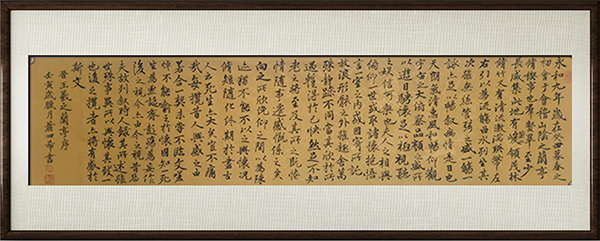 永和九年歲在癸丑暮春之
初會于會稽山陰之蘭亭
脩禊事也群賢畢至少
長咸集此地有崇山峻領茂林
脩竹又有清流激湍暎帶左
右引以為流觴曲水列坐其
次雖無絲竹管弦之盛一觴一
詠亦足以暢敘幽情是日也
天朗氣清惠風和暢仰觀
宇宙之大俯察品類之盛所
以遊目騁懷足以極視聽
之娛信可樂也夫人之相與
俯仰一世或取諸懷抱悟
言一室之內或因寄所託
放浪形骸之外雖趣舍萬
殊靜躁不同當其欣於所
遇暫得於己快然自足不知
老之將至及其所之既惓
情隨事遷感慨係之矣
向之所欣俛仰之間以為陳
迹猶不能不以之興懷況
脩短隨化終期於盡古
人云死生亦大矣豈不痛
哉每攬昔人興感之由
若合一契未嘗不臨文嗟
悼不能喻之於懷固知一死
生為虛誕齊彭殤為妄作
後之視今亦由今之視昔悲
夫故列敘時人錄其所述雖
世殊事異所以興懷其致一
也後之攬者亦將有感於
斯文
晉王羲之蘭亭序
壬寅歲臘月蕭四希書